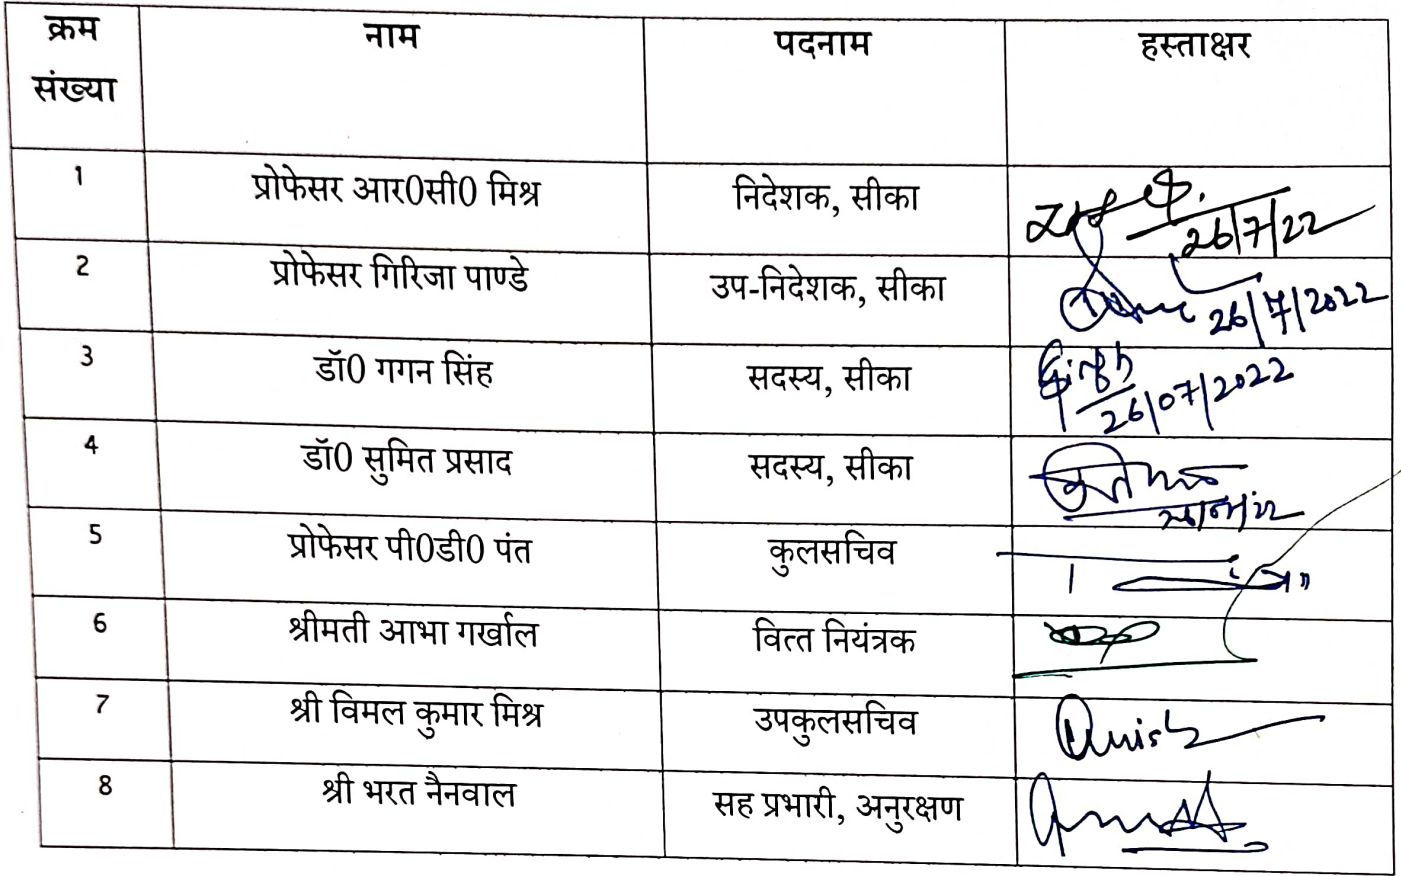 क्रम संख्या नाम पदनाम हस्ताक्षर
1 प्रोफेसर आर0सी0 मिश्र निदेशक, सीका 26/7/22
2 प्रोफेसर गिरिजा पाण्डे उप-निदेशक, सीका 26/7/2022
3 डॉ0 गगन सिंह सदस्य, सीका Singh 26/07/2022
4 डॉ0 सुमित प्रसाद सदस्य, सीका
5 प्रोफेसर पी0डी0 पंत कुलसचिव
6 श्रीमती आभा गर्खाल वित्त नियंत्रक
7 श्री विमल कुमार मिश्र उपकुलसचिव
8 श्री भरत नैनवाल सह प्रभारी, अनुरक्षण